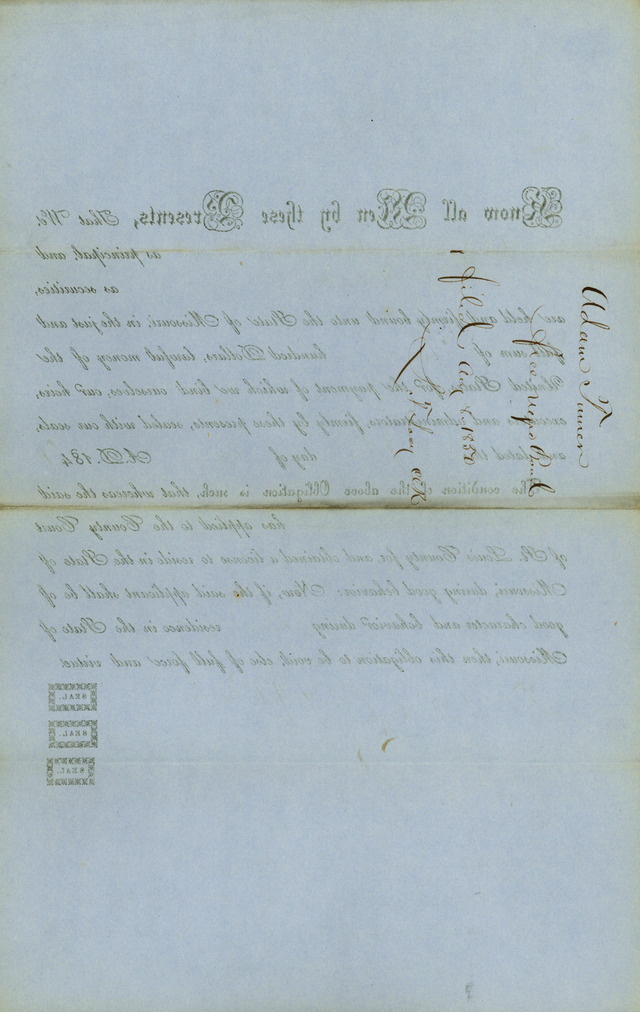 Know all Men by these Presents, That We,
as principal, and
as securities,
are held and firmly bound unto the State of Missouri, in the just and
full sum of hundred Dollars, lawful money of the
United States, for the payment of which we bind ourselves, our heirs,
executors and administrators, firmly by these presents, sealed with our seals,
and dated this day of A.D. 184
The condition of the above Obligation is such, that whereas the said
has applied to the County Court
of St. Louis County for and obtained a license to reside in the State of
Missouri, during good behavior: Now, if the said applicant shall be of
good character and behavior during residence in the State of
Missouri, then this obligation to be void, else of full force and virtue.
SEAL.
SEAL.
SEAL.
Adam Turner
Bond
filed 1850